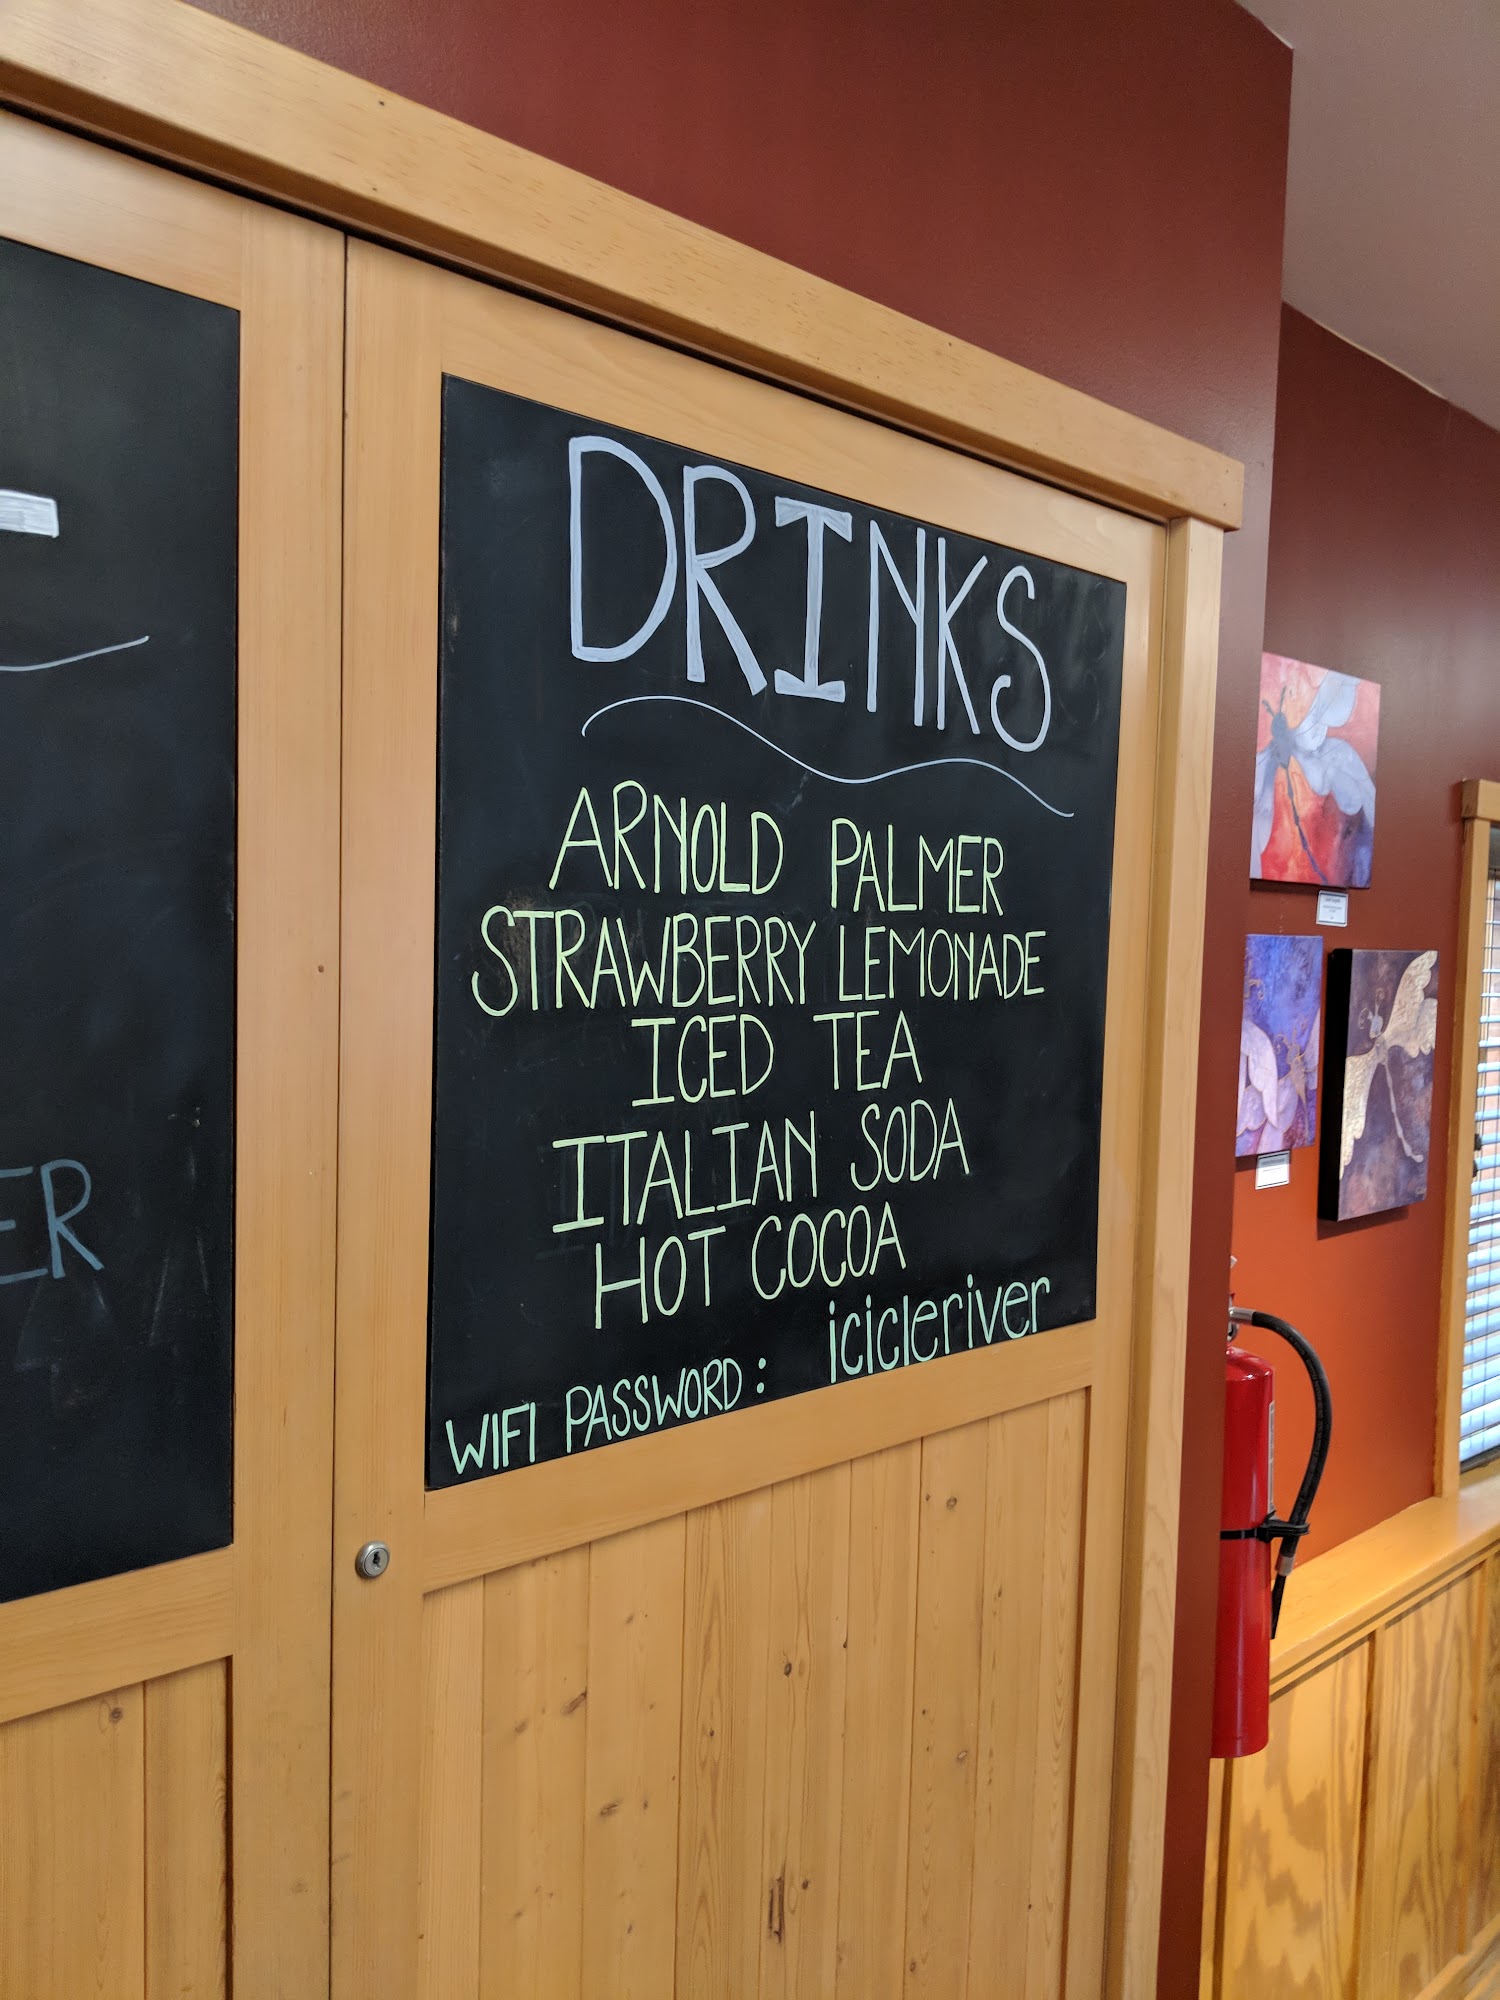 DRINKS
ARNOLD PALMER
STRAWBERRY LEMONADE
ICED TEA
ITALIAN SODA
HOT COCOA
WIFI PASSWORD: icicleriver